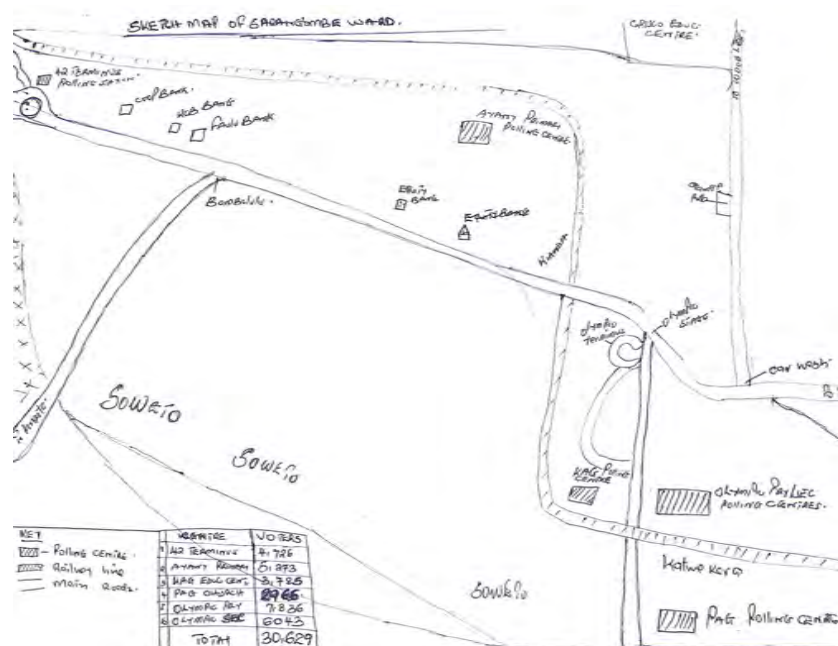 SKETCH MAP OF SARANGOMBE WARD.
CRISCO EDUC.
CENTRE.
42 TERMINUS
POLLING STATION.
COOP BANK.
KCB BANK
FAULU BANK
AYANY PRIMARY
POLLING CENTRE
EQUITY
BANK
EQUITY BANK
Bombolulu.
KIANDA
OLYMPIC
TERMINUS
OLYMPIC
STAGE.
CAR WASH
SOWETO
SOWETO
SOWETO
KAG POLING
CENTRE
OLYMPIC PRY/SEC
POLLING CENTRES.
Katwekera
PAG POLLING CENTRE
KEY
- Polling Centre.
Railway line
main roads.
CENTRE VOTERS
1 42 TERMINUS 4,726
2 AYANY PRIMARY 5,273
3 KAG EDUC CENT 3,785
4 PAG CHURCH 2966
5 OLYMPIC PRY 7,836
6 OLYMPIC SEC 6043
TOTAL 30,629